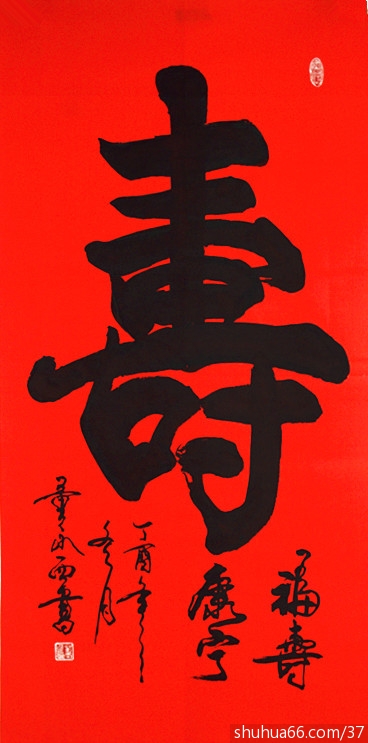 壽
福壽
康寧
丁酉年
冬月
西書
shuhua66.com/37